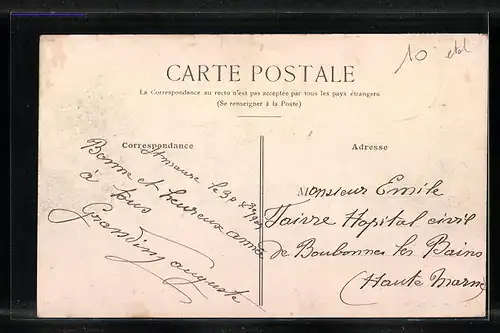 10 etat
CARTE POSTALE
La Correspondance au recto n'est pas acceptée par tous les pays étrangers
(Se renseigner à la Poste)
Correspondance
St maure le 30 Xbre
Bonne et heureux année
à tous
Grandin auguste
Adresse
Monsieur Emile
Faivre Hopital civil
de Boubonnes les Bains
(Haute Marne)